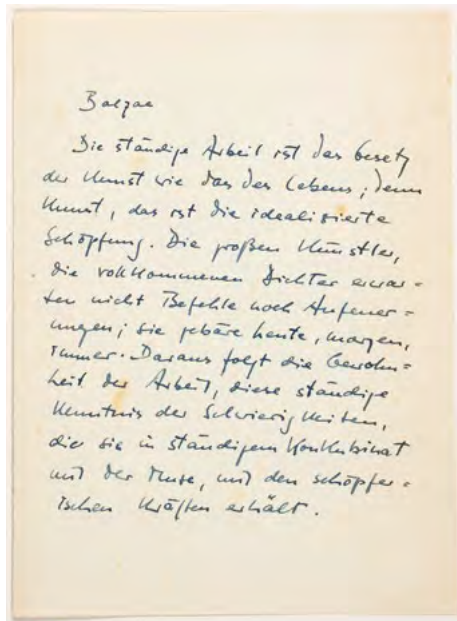 Balzac
Die ständige Arbeit ist das Gesetz
der Kunst wie das des Lebens; denn
Kunst, das ist die idealisierte
Schöpfung. Die großen Künstler,
die vollkommenen Dichter erwar=
ten nicht Befehle noch Aufeuer=
ungen; sie gebäre heute, morgen,
immer. Daraus folgt die Gewohn=
heit der Arbeit, diese ständige
Kenntnis der Schwierigkeiten,
die sie in ständigem Konkubinat
mit der Muse, mit den schöpfer=
ischen Kräften erhält.